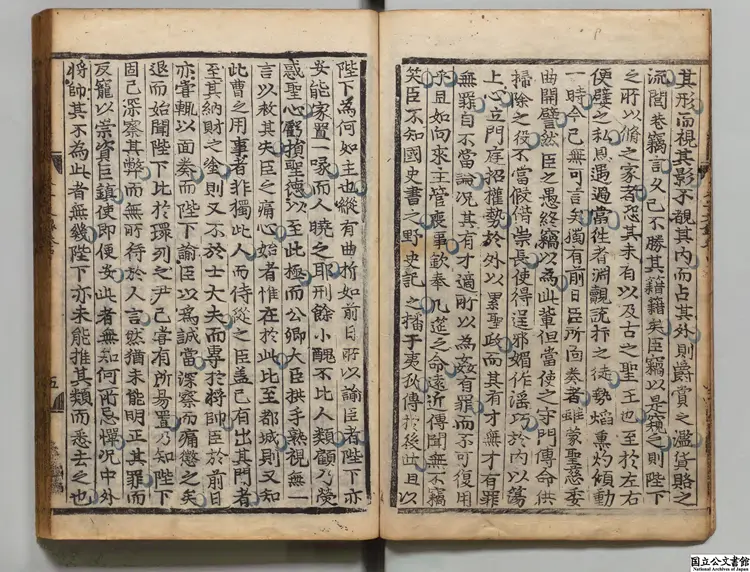 其形而視其影不覩其內而占其外則爵賞之濫貨賂之
流閭巷竊言久已不勝其籍籍矣臣竊以是窺之則陛下
之所以脩之家者恐其未有以及古之聖王也至於左右
便嬖之私恩遇過當往者淵覿說抃之徒勢焰熏灼傾動
一時今已無可言矣獨有前日臣所面奏者雖蒙聖慈委
曲開譬然臣之愚終竊以為此輩但當使之守門傳命供
掃除之役不當假借崇長使得逞邪媚作淫巧於內以蕩
上心立門庭招權勢於外以累聖政而其有才無才有罪
無罪自不當論況其有才適所以為姦有罪而不可復用
乎且如向來主管喪事欽奉几筵之命遠近傳聞無不竊
笑臣不知國史書之野史記之播于夷狄傳於後世且以
陛下為何如主也縱有曲折如前日所以諭臣者陛下亦
安能家置一喙而人曉之耶刑餘小醜不比人類顧乃熒
惑聖心虧損聖德以至此極而公卿大臣拱手熟視無一
言以救其失臣之痛心始者惟在於此比至都城則又知
此曹之用事者非獨此人而侍從之臣蓋已有出其門者
至其納財之塗則又不於士大夫而專於將帥臣於前日
亦嘗輒以面奏而陛下諭臣以為誠當深察而痛懲之矣
退而始聞陛下比於環列之尹已嘗有所易置乃知陛下
固已深察其弊而無所待於人言然猶未能明正其罪而
反寵以崇資巨鎮使即便安此者無知何所忌憚況中外
將帥其不為此者無幾陛下亦未能推其類而悉去之也
五
国立公文書館
National Archives of Japan